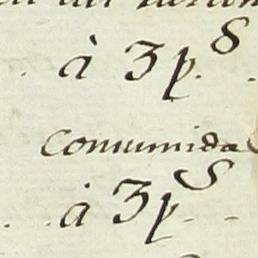 à 3 p.s
Comunida
à 3 p.s